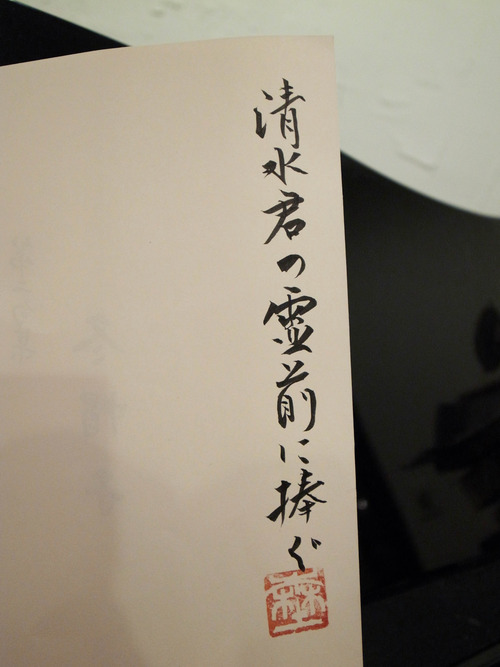 清水君の霊前に捧ぐ